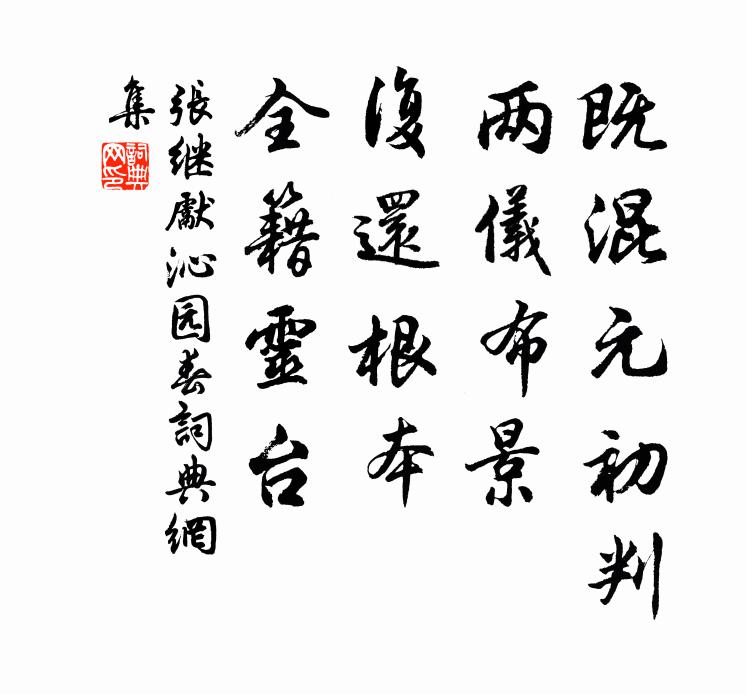 既混元初判
两儀布景
復還根本
全籍靈台
張继獻沁园春詞典網
集
詞典網印